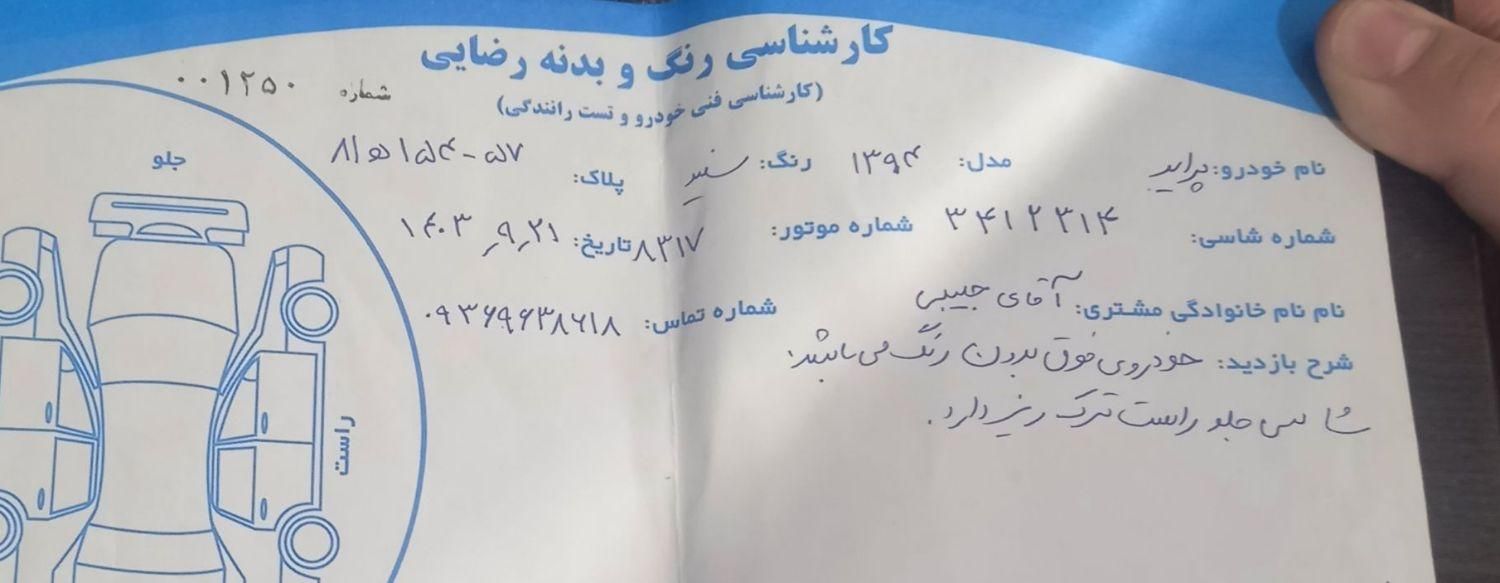 کارشناسی رنگ و بدنه رضایی
(کارشناسی فنی خودرو و تست رانندگی)
شماره ۰۰۱۲۵۰
نام خودرو: پراید مدل: ۱۳۹۴ رنگ: سفید پلاک:
شماره شاسی: ۳۴۱۲۳۱۴ شماره موتور: ۸۳۱۷ تاریخ: ۱۴۰۳٫۹٫۲۱
نام نام خانوادگی مشتری: آقای حبیبی شماره تماس: ۰۹۳۶۹۶۳۸۶۱۸
شرح بازدید: خودروی فوق بدون رنگ می باشد.
شاسی جلو راست ترک ریز دارد.
جلو
راست